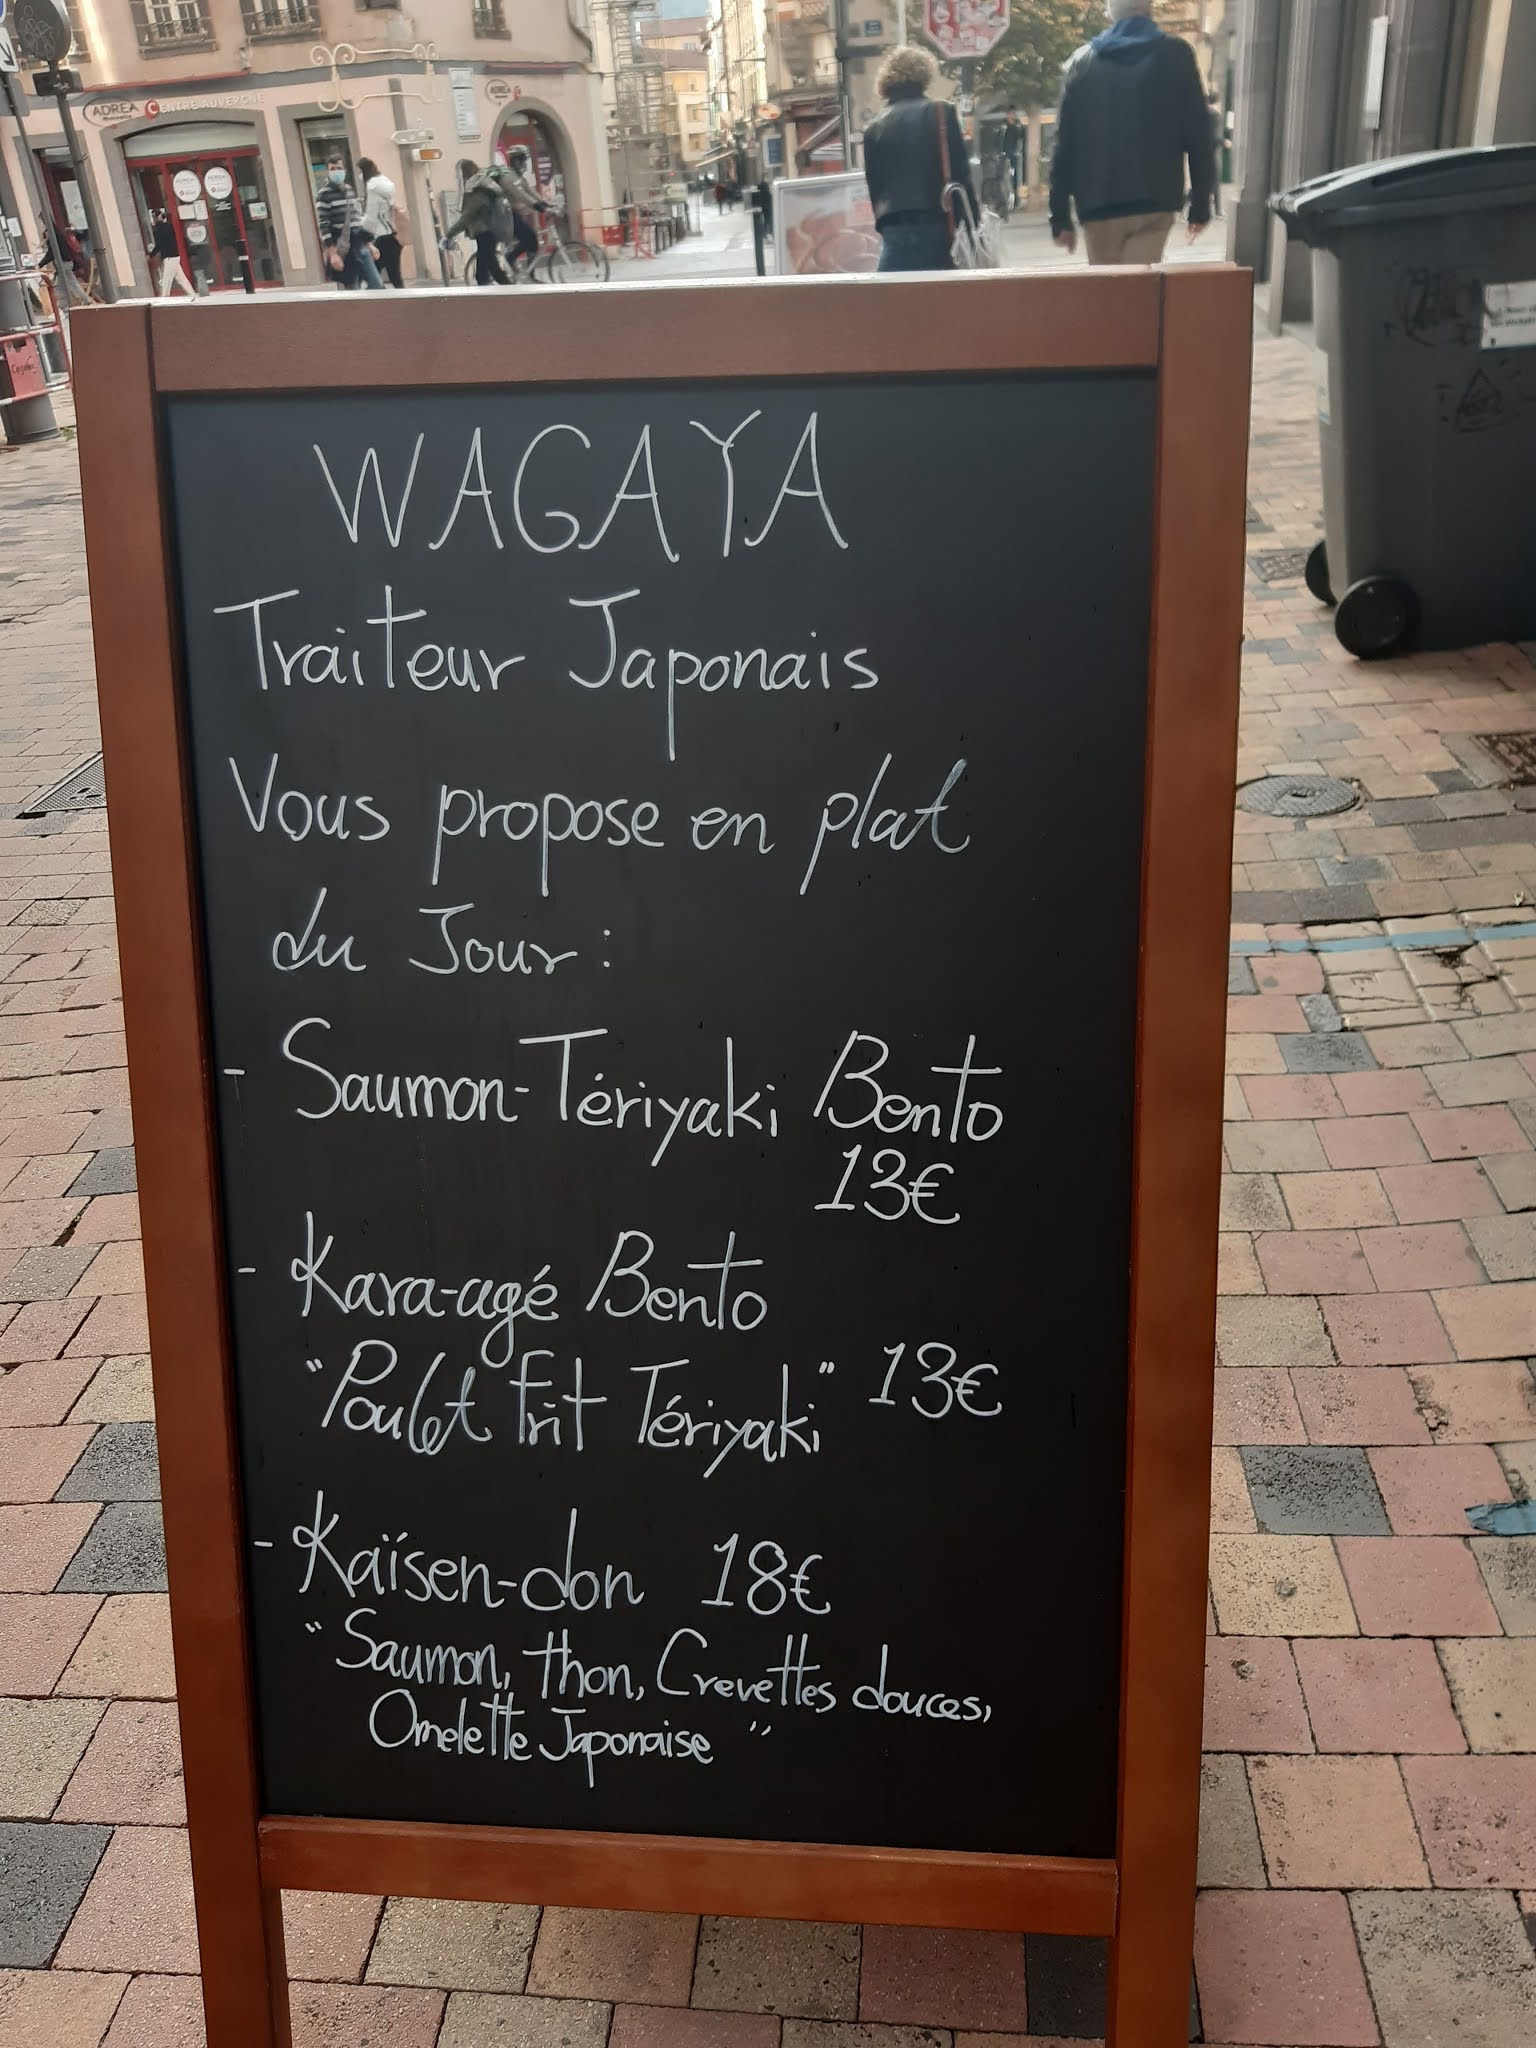 ADREA
CENTRE AUVERGNE
ADREA
WAGAYA
Traiteur Japonais
Vous propose en plat
du Jour :
- Saumon-Tériyaki Bento
13€
- Kara-agé Bento
"Poulet Frit Tériyaki" 13€
- Kaïsen-don 18€
"Saumon, thon, Crevettes douces,
Omelette Japonaise"